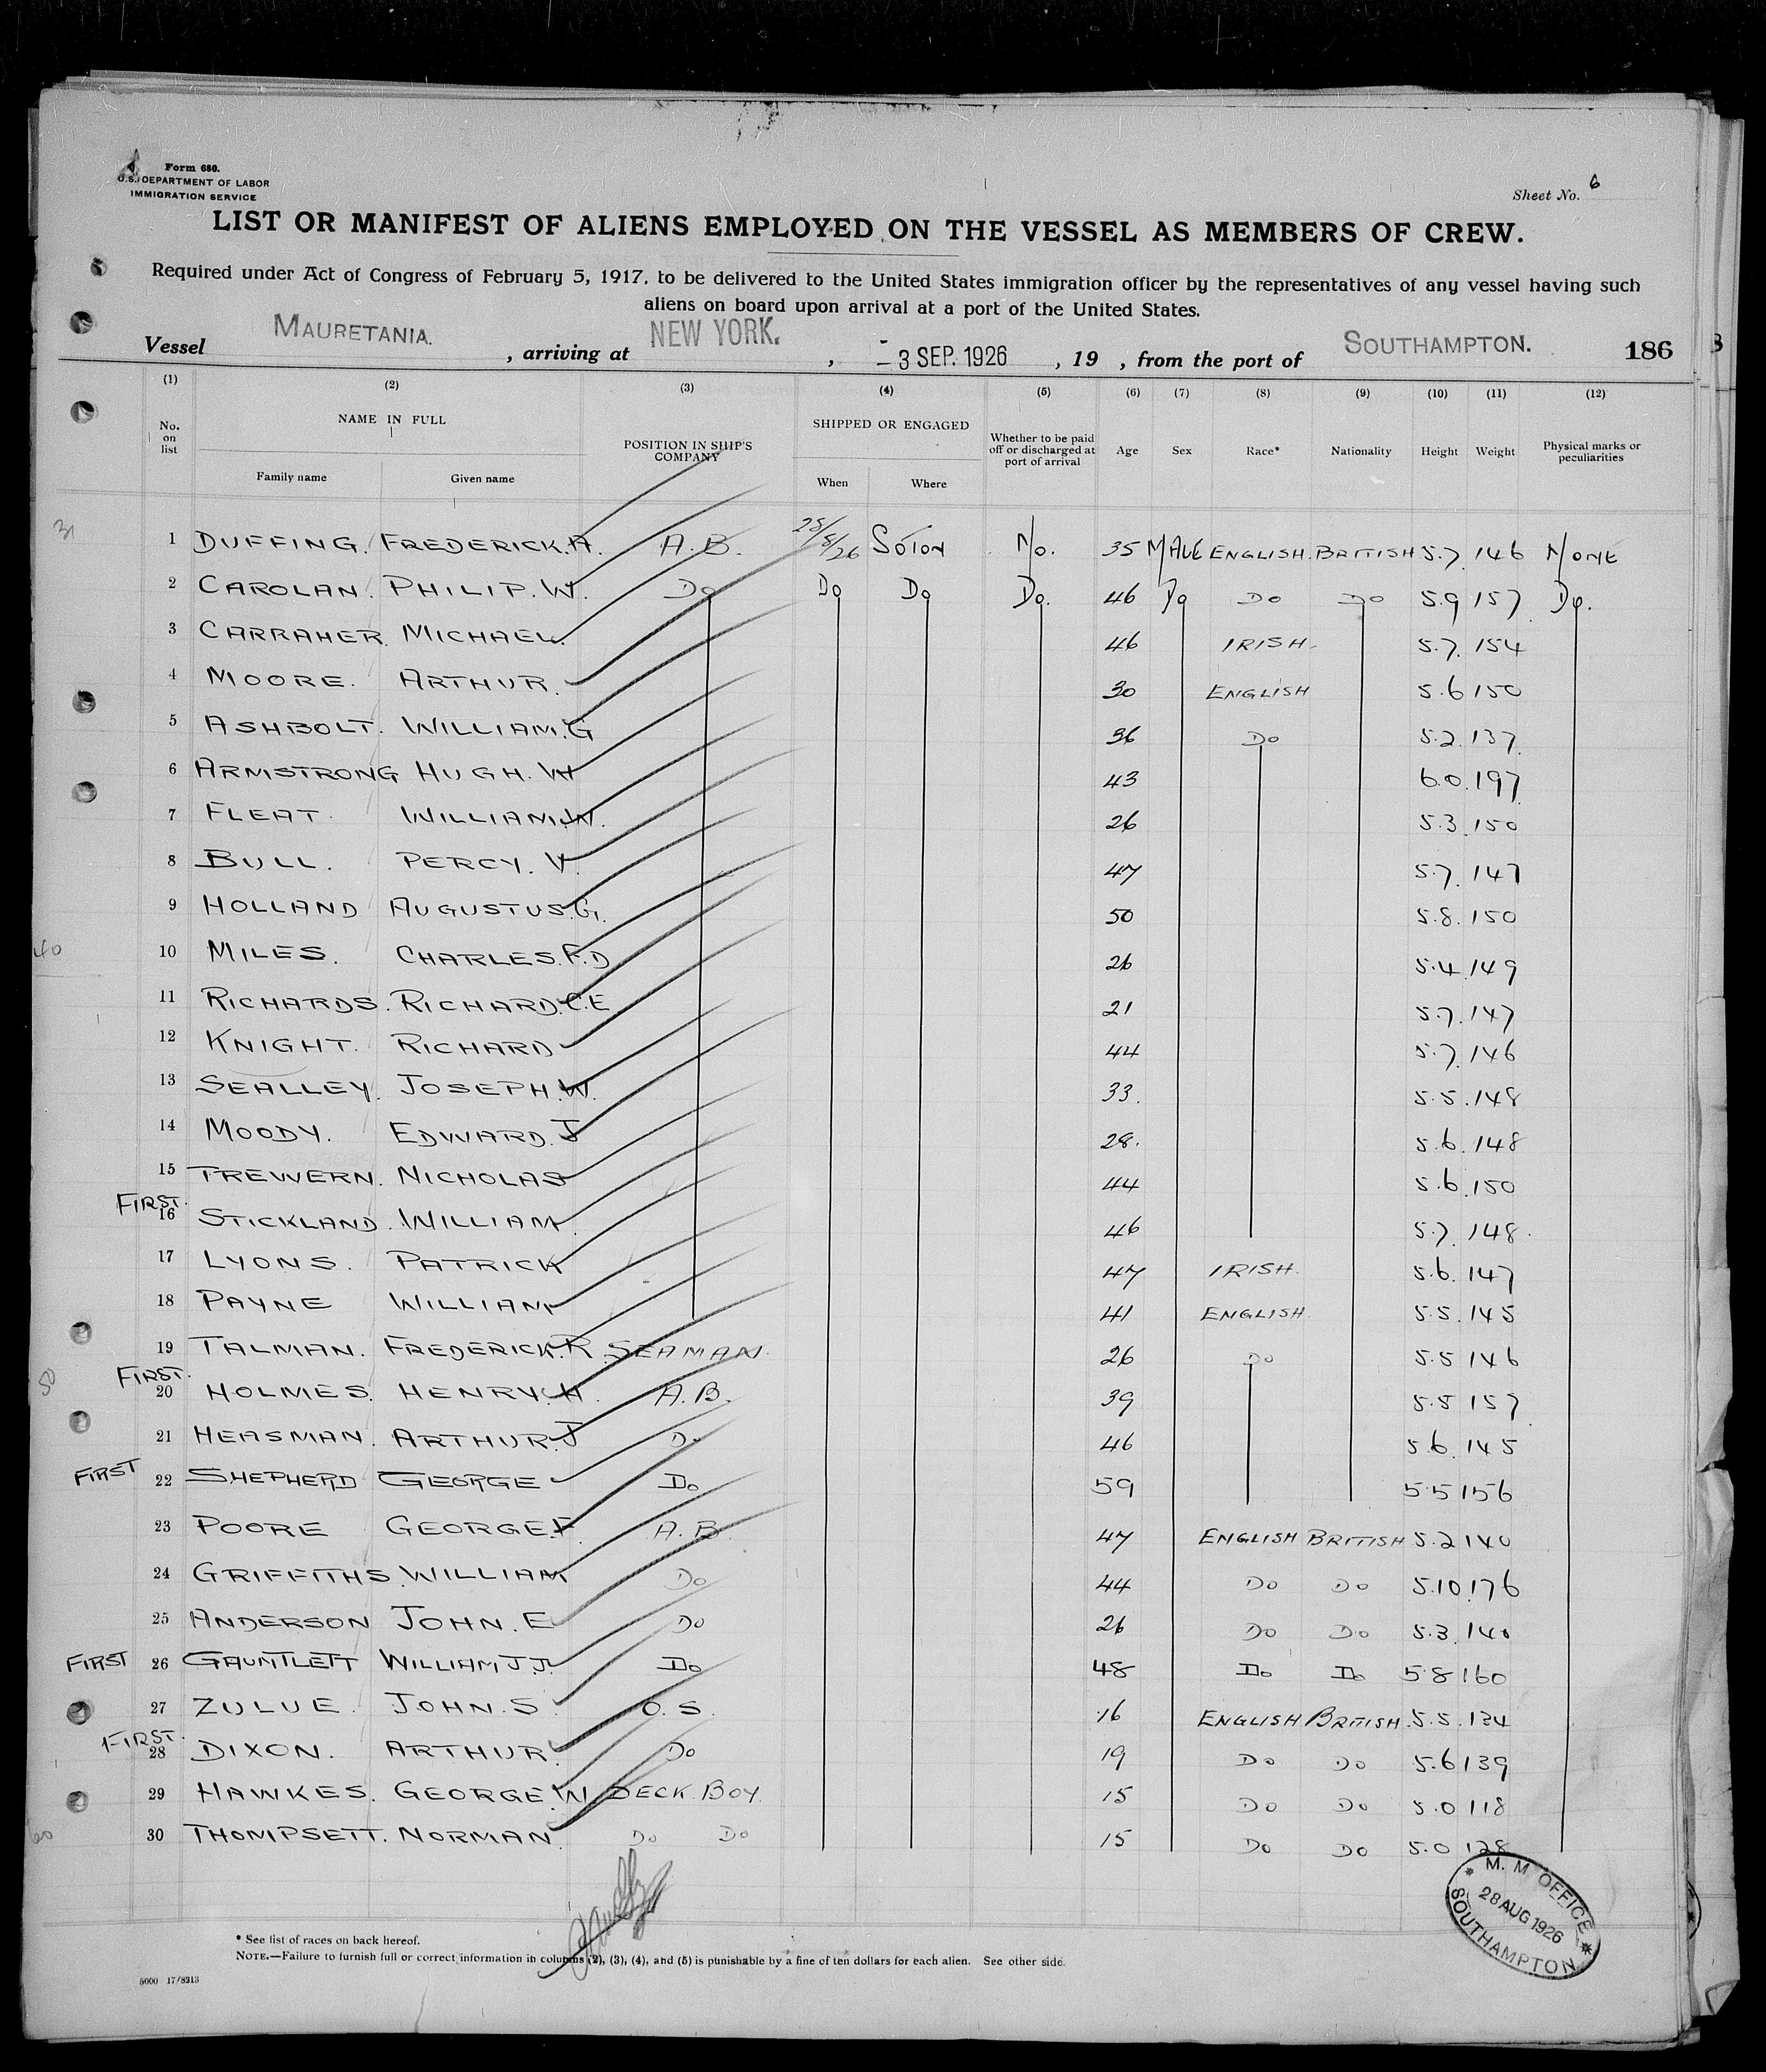 Form 680.
U.S. DEPARTMENT OF LABOR
IMMIGRATION SERVICE
Sheet No. 6
LIST OR MANIFEST OF ALIENS EMPLOYED ON THE VESSEL AS MEMBERS OF CREW.
Required under Act of Congress of February 5, 1917, to be delivered to the United States immigration officer by the representatives of any vessel having such
aliens on board upon arrival at a port of the United States.
Vessel MAURETANIA. , arriving at NEW YORK. , - 3 SEP. 1926 , 19 , from the port of SOUTHAMPTON. 186
(1) (2) (3) (4) (5) (6) (7) (8) (9) (10) (11) (12)
No. on list NAME IN FULL Family name Given name POSITION IN SHIP'S COMPANY SHIPPED OR ENGAGED When Where Whether to be paid off or discharged at port of arrival Age Sex Race* Nationality Height Weight Physical marks or peculiarities
31
1 DUFFING. FREDERICK.A. A.B. 28/8/26 SOTON No. 35 MALE ENGLISH. BRITISH 5.7. 146 NONE
2 CAROLAN. PHILIP.W. Do Do Do Do. 46 Do Do Do 5.9 157 Do.
3 CARRAHER. MICHAEL. 46 IRISH. 5.7. 154
4 MOORE. ARTHUR. 30 ENGLISH 5.6 150
5 ASHBOLT. WILLIAM.G 36 Do 5.2. 137.
6 ARMSTRONG HUGH. W 43 6.0. 197
7 FLEAT. WILLIAM.W. 26 5.3. 150
8 BULL. PERCY. V. 47 5.7. 147
9 HOLLAND AUGUSTUS.G. 50 5.8. 150
40
10 MILES. CHARLES.F.D 26 5.4. 149
11 RICHARDS. RICHARD.C.E 21 5.7. 147
12 KNIGHT. RICHARD 44 5.7. 146
13 SEALLEY. JOSEPH.W. 33. 5.5. 148
14 MOODY. EDWARD. J 28. 5.6. 148
15 TREWERN. NICHOLAS 44 5.6. 150
FIRST. 16 STICKLAND. WILLIAM. 46 5.7. 148.
17 LYONS. PATRICK 47 IRISH. 5.6. 147
18 PAYNE WILLIAM 41 ENGLISH. 5.5. 145
19 TALMAN. FREDERICK.R. SEAMAN. 26 Do 5.5 146
50
FIRST. 20 HOLMES. HENRY.H. A.B. 39 5.5 157
21 HEASMAN. ARTHUR.J Do 46 5.6. 145
FIRST 22 SHEPHERD GEORGE Do 59 5.5 156
23 POORE GEORGE.F. A.B. 47 ENGLISH BRITISH 5.2 140
24 GRIFFITHS. WILLIAM Do 44 Do Do 5.10. 176
25 ANDERSON JOHN. E Do 26 Do Do 5.3. 140
FIRST 26 GAUNTLETT WILLIAM J.J. Do 48 Do Do 5.8 160
27 ZULUE. JOHN. S. O.S. 16 ENGLISH BRITISH. 5.5. 134
FIRST. 28 DIXON. ARTHUR. Do 19 Do Do 5.6 139
29 HAWKES. GEORGE.W. DECK. BOY. 15 Do Do 5.0 118
60
30 THOMPSETT. NORMAN. Do Do 15 Do Do 5.0 128
M. M. OFFICE
28 AUG 1926
SOUTHAMPTON
* See list of races on back hereof.
NOTE.—Failure to furnish full or correct information in columns (2), (3), (4), and (5) is punishable by a fine of ten dollars for each alien. See other side.
5000 17/8213